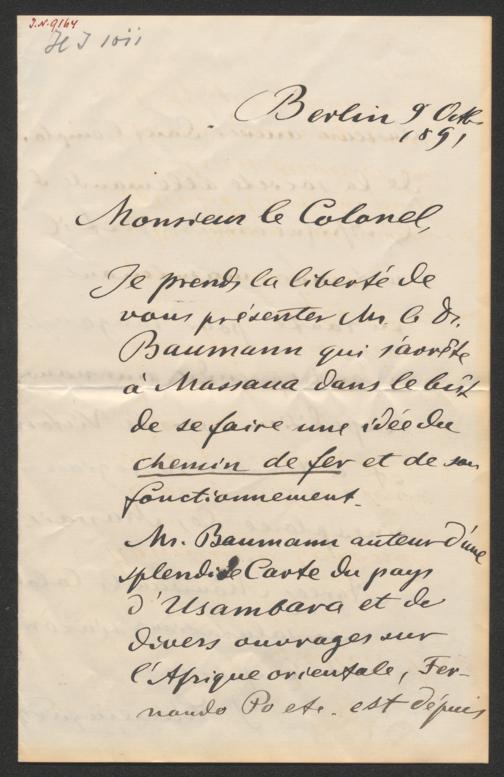 J.N. 9164
H J 1011
Berlin 9 Octb.
1891
Monsieur le Colonel,
Je prends la liberté de
vous présenter Mr. le Dr.
Baumann qui s'arrête
à Massaua dans le bût
de se faire une idée du
chemin de fer et de son
fonctionnement.
Mr. Baumann auteur d'une
splendide Carte du pays
d'Usambara et de
divers ouvrages sur
l'Afrique orientale, Fer-
nando Po etc. est dépuis